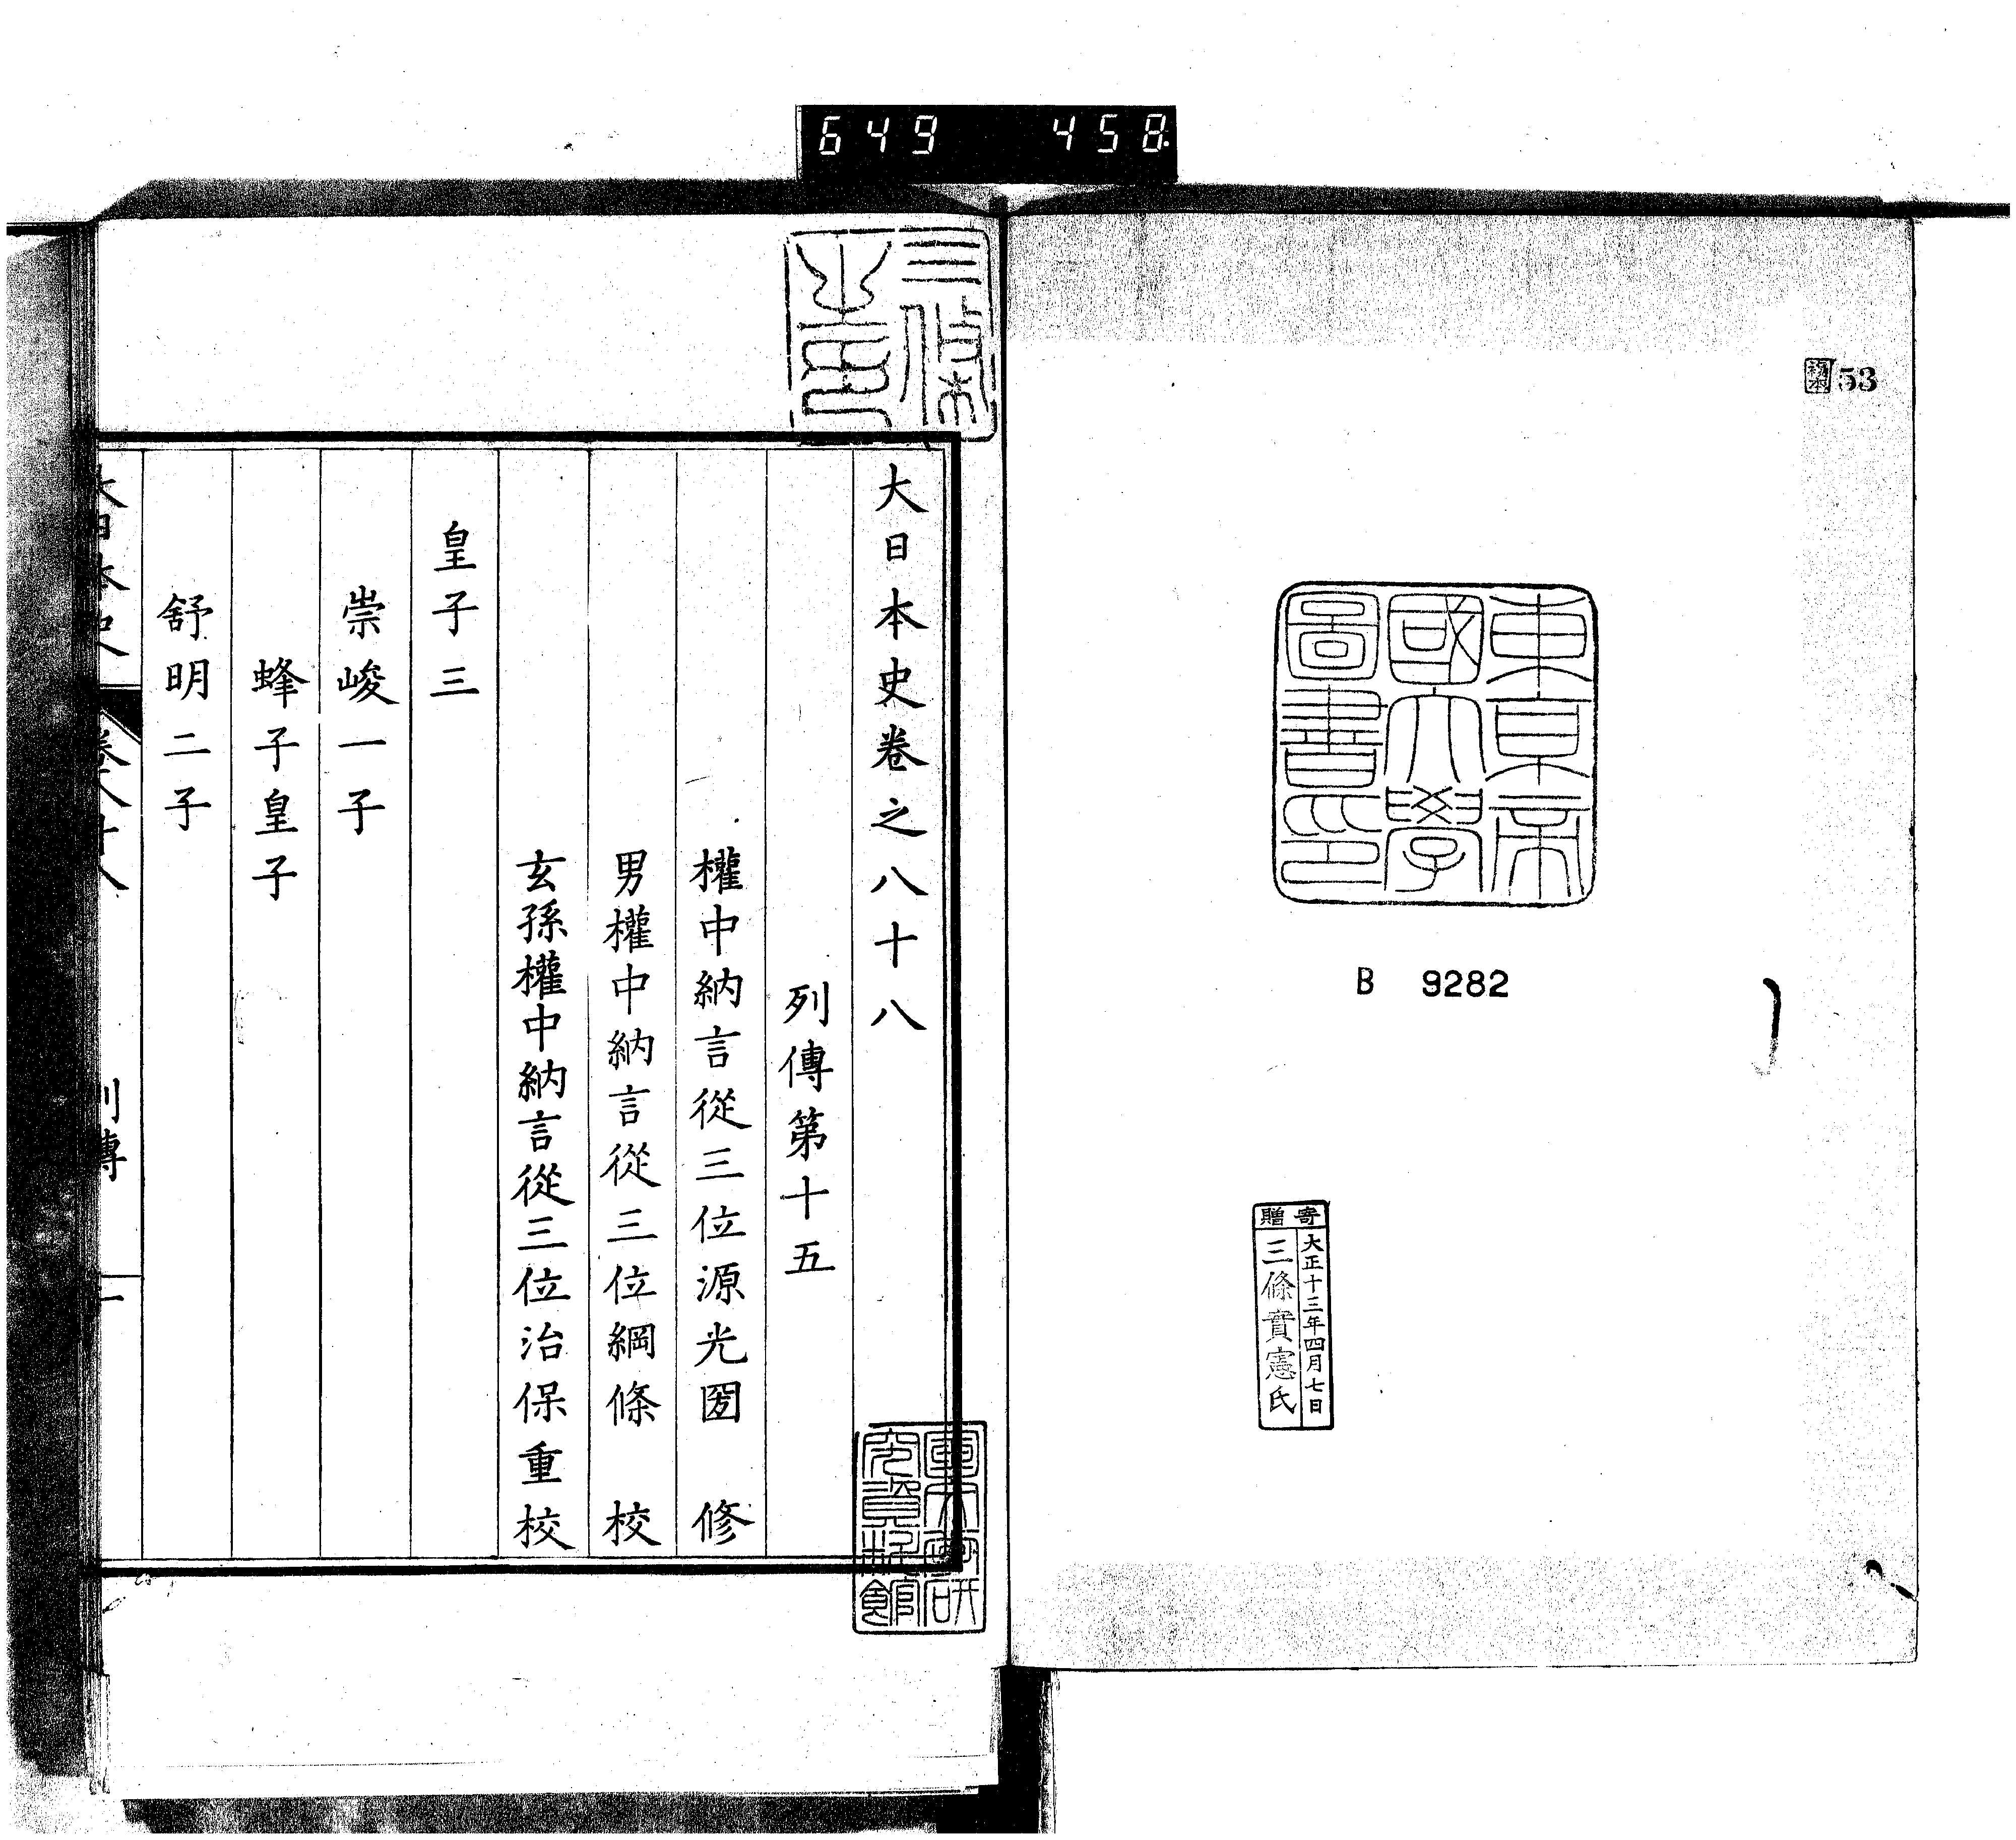 649 458
複本 53
東京帝
國大學
圖書印
B 9282
寄贈
大正十三年四月七日
三條實憲氏
三條
之印
大日本史卷之八十八
列傳第十五
權中納言從三位源光圀 修
男權中納言從三位綱條 校
玄孫權中納言從三位治保重校
皇子三
崇峻一子
蜂子皇子
舒明二子
大日本史 卷八十八 列傳 一
究資料館